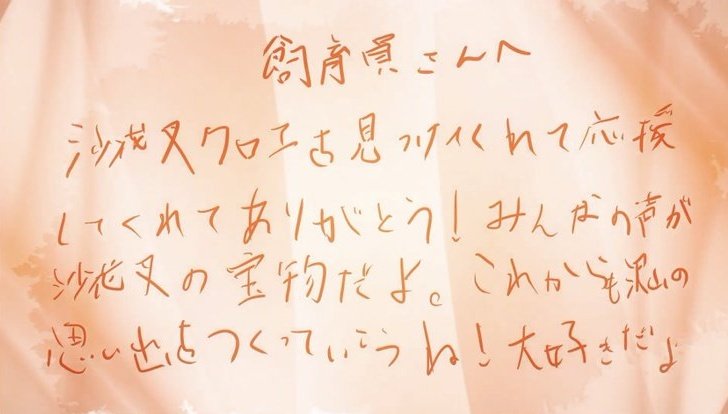 飼育員さんへ
沙花叉クロヱを見つけてくれて応援
してくれてありがとう!みんなの声が
沙花叉の宝物だよ。これからも沢山の
思い出をつくっていこうね!大好きだよ